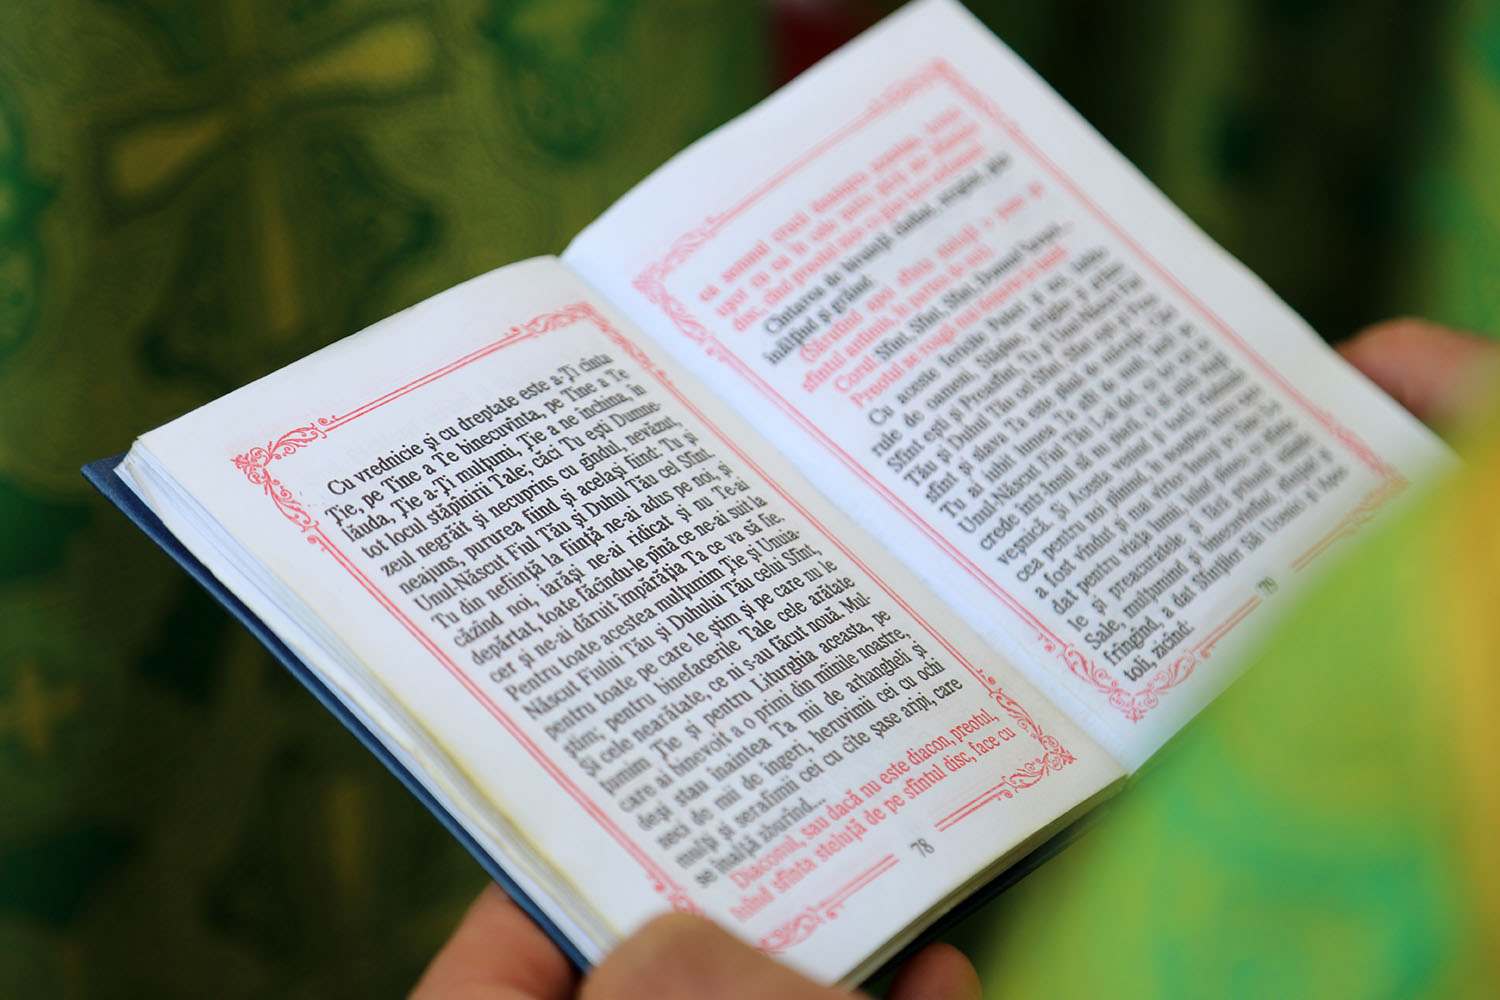 Cu vrednicie şi cu dreptate este a-Ţi cînta
Ţie, pe Tine a Te binecuvînta, pe Tine a Te
lăuda, Ţie a-Ţi mulţumi, Ţie a ne închina, în
tot locul stăpînirii Tale; căci Tu eşti Dumne-
zeul negrăit şi necuprins cu gîndul, nevăzut,
neajuns, pururea fiind şi acelaşi fiind: Tu şi
Unul-Născut Fiul Tău şi Duhul Tău cel Sfînt.
Tu din nefiinţă la fiinţă ne-ai adus pe noi, şi
căzînd noi, iarăşi ne-ai ridicat şi nu Te-ai
depărtat, toate făcîndu-le pînă ce ne-ai suit la
cer şi ne-ai dăruit împărăţia Ta ce va să fie.
Pentru toate acestea mulţumim Ţie şi Unuia-
Născut Fiului Tău şi Duhului Tău celui Sfînt,
pentru toate pe care le ştim şi pe care nu le
ştim; pentru binefacerile Tale cele arătate
şi cele nearătate, ce ni s-au făcut nouă. Mul-
ţumim Ţie şi pentru Liturghia aceasta, pe
care ai binevoit a o primi din mîinile noastre,
deşi stau înaintea Ta mii de arhangheli şi
zeci de mii de îngeri, heruvimii cei cu ochi
mulţi şi serafimii cei cu cîte şase aripi, care
se înalţă zburînd...
Diaconul, sau dacă nu este diacon, preotul,
luînd sfînta steluţă de pe sfîntul disc, face cu
78
ea semnul crucii deasupra acestuia,
disc, cînd preotul zice cu glas tare
Cîntarea de biruinţă cîntînd, strigînd, glas
înălţînd şi grăind:
sfîntul antimis, în partea de sus)
Corul: Sfînt, Sfînt, Sfînt, Domnul Savaot...
Preotul se roagă mai departe în taină:
Cu aceste fericite Puteri şi noi, Iubito-
rule de oameni, Stăpîne, strigăm şi grăim:
Sfînt eşti şi Preasfînt, Tu şi Unul-Născut Fiul
Tău şi Duhul Tău cel Sfînt. Sfînt eşti şi Prea-
sfînt şi slava Ta este plină de măreţie. Căci
Tu ai iubit lumea Ta atît de mult, încît pe
Unul-Născut Fiul Tău L-ai dat, ca tot cel ce
crede într-Însul să nu piară, ci să aibă viaţă
veşnică. Şi Acesta
cea pentru noi plinindu-le, în noaptea în care
a fost vîndut şi mai
dat pentru viaţa lumii, luînd pîinea cu sfinte-
le şi preacuratele şi fără prihană mîinile
Sale, mulţumind şi binecuvîntînd, sfinţind şi
frîngînd, a dat Sfinţilor Săi Ucenici şi Apos-
toli, zicînd:
79